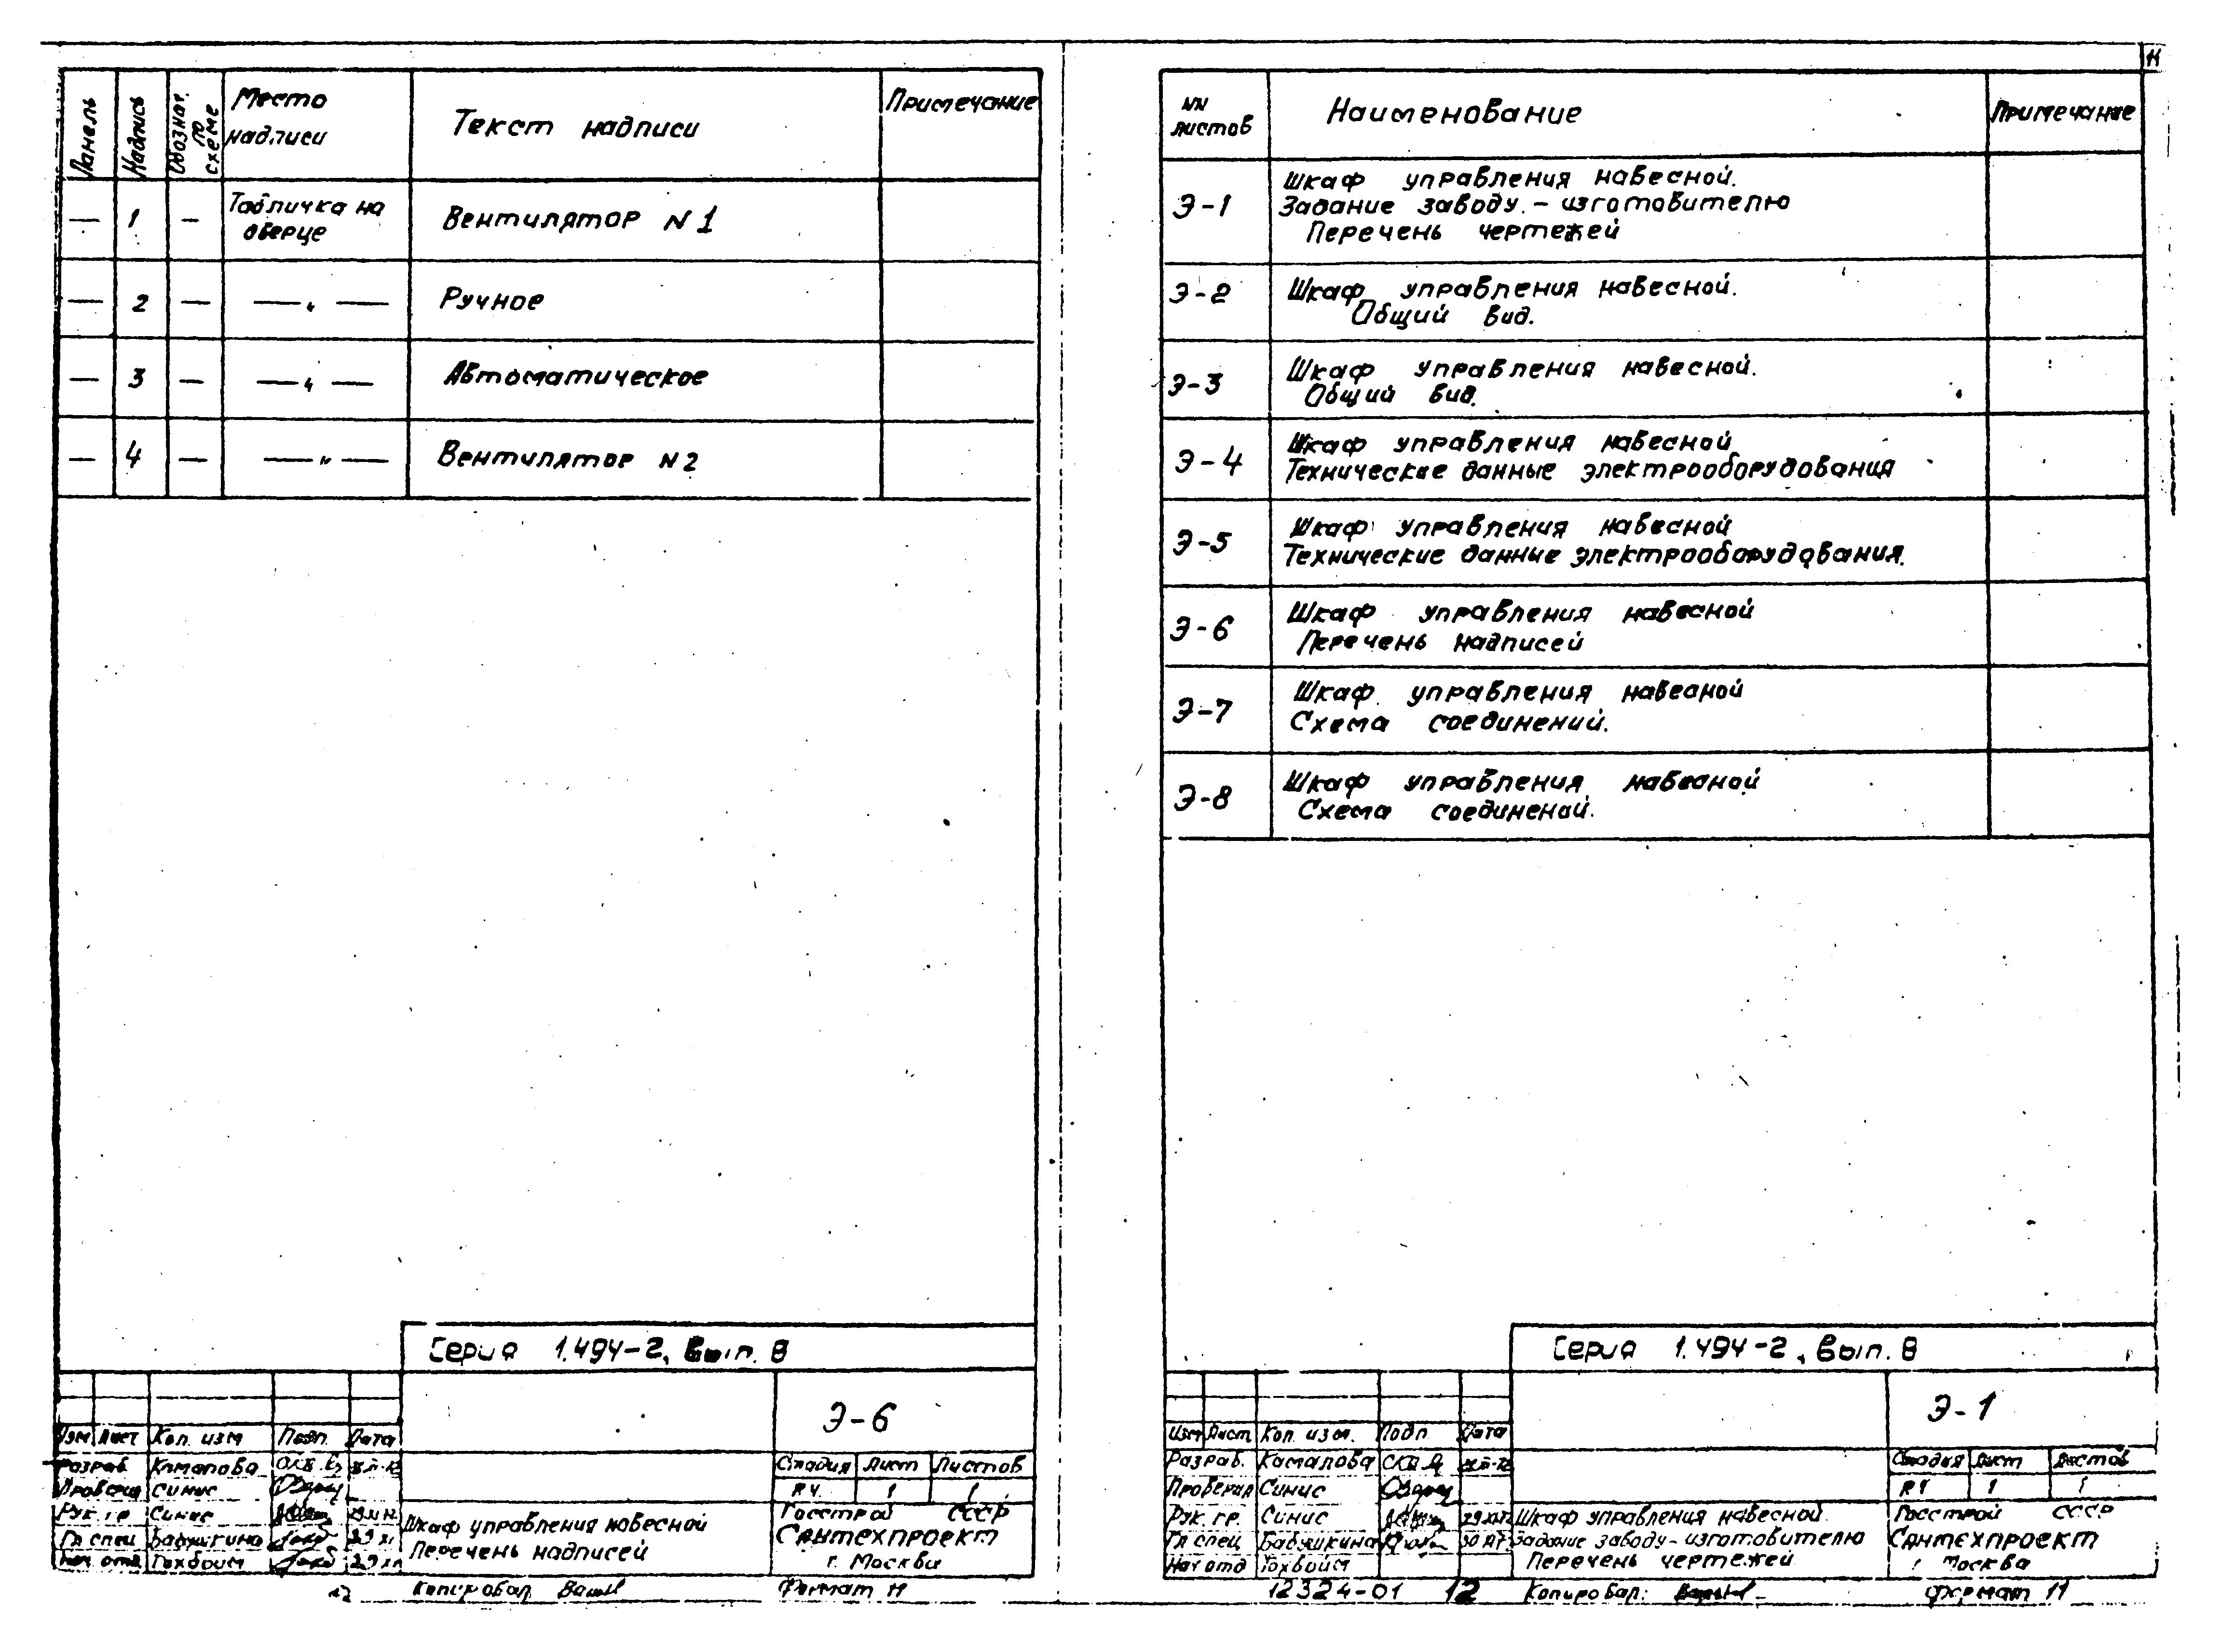 11
Панель
Надпись
Обознач. по схеме
Место надписи
Текст надписи
Примечание
— 1 — Табличка на
дверце
Вентилятор N1
— 2 — —〃— Ручное
— 3 — —〃— Автоматическое
— 4 — —〃— Вентилятор N2
Серия 1.494-2, Вып. 8
Э-6
Изм Лист Кол. изм Подп. Дата
Разраб. Камалова
Проверил Синис
Рук. гр. Синис
Гл спец Бабушкина
Нач. отд. Гохбойм
Стадия Лист Листов
РЧ 1 1
Шкаф управления навесной
Перечень надписей
Госстрой СССР
Сантехпроект
г. Москва
Копировал
Формат 11
NN
листов
Наименование
Примечание
Э-1
Шкаф управления навесной.
Задание заводу.-изготовителю
Перечень чертежей
Э-2
Шкаф управления навесной.
Общий вид.
Э-3
Шкаф управления навесной.
Общий вид.
Э-4
Шкаф управления навесной
Технические данные электрооборудования
Э-5
Шкаф управления навесной
Технические данные электрооборудования.
Э-6
Шкаф управления навесной
Перечень надписей
Э-7
Шкаф управления навесной
Схема соединений.
Э-8
Шкаф управления навесной
Схема соединений.
Серия 1.494-2, Вып. 8
Э-1
Изм Лист Кол. изм. Подп Дата
Разраб. Камалова
Проверил Синис
Рук. гр. Синис
Гл спец Бабушкина
Нач отд Гохбойм
Стадия Лист Листов
РЧ 1 1
Шкаф управления навесной.
Задание заводу-изготовителю
Перечень чертежей
Госстрой СССР
Сантехпроект
г Москва
12324-01 12
Копировал:
Формат 11